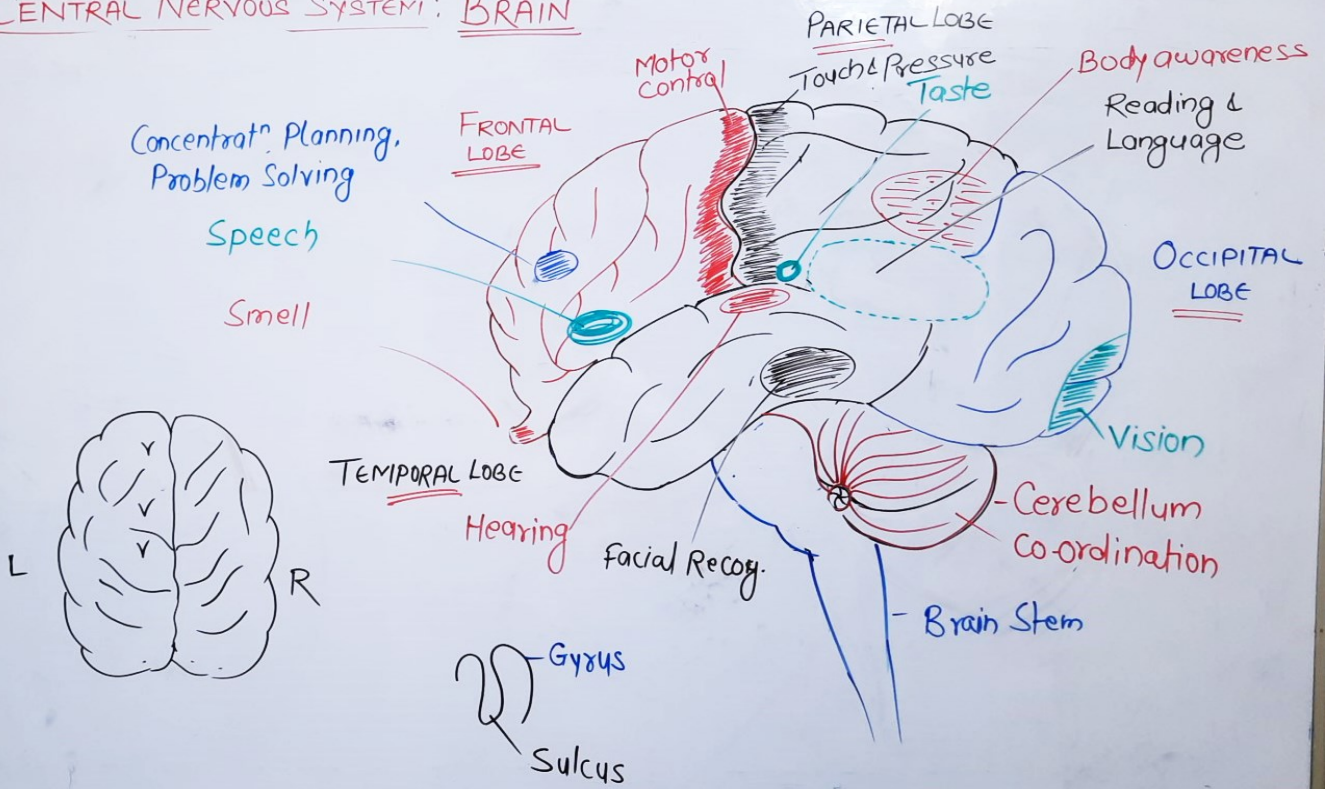 CENTRAL NERVOUS SYSTEM: BRAIN
PARIETAL LOBE
Motor
Control
Touch & Pressure
Taste
Body awareness
Reading &
Language
FRONTAL
LOBE
Concentratn. Planning,
Problem Solving
Speech
Smell
OCCIPITAL
LOBE
Vision
TEMPORAL LOBE
Hearing
Facial Recog.
Cerebellum
Co-ordination
Brain Stem
L
R
Gyrus
Sulcus